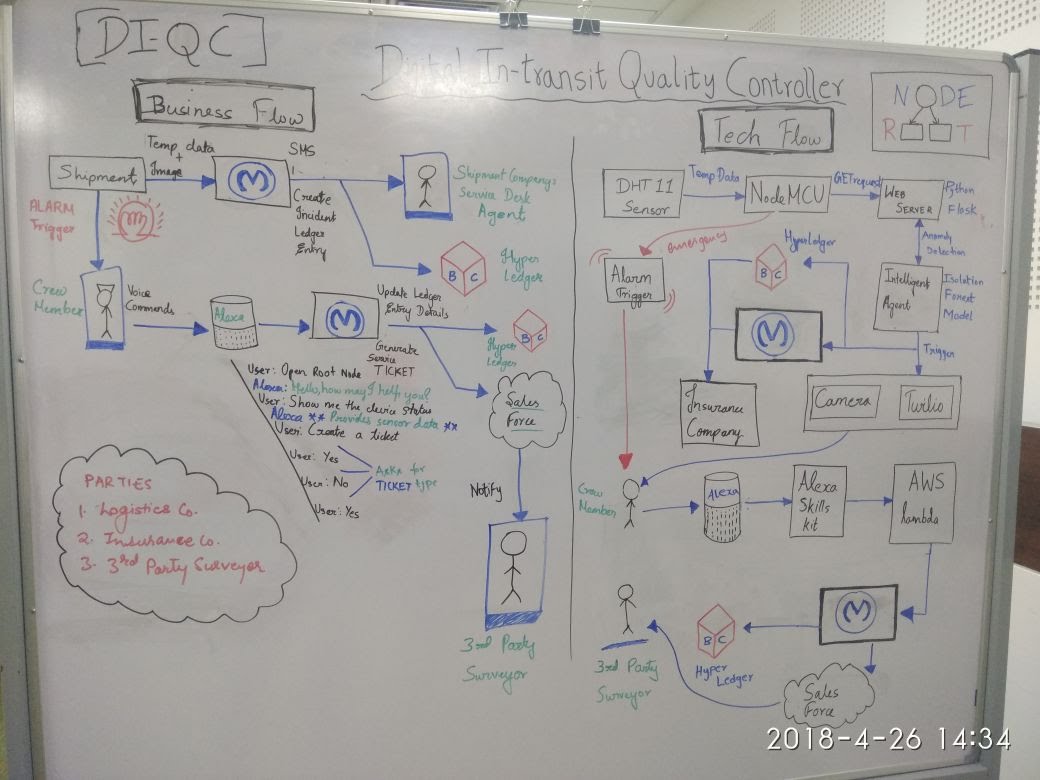 DI-QC
Digital In-transit Quality Controller
Business Flow
Shipment
Temp data
+
Image
M
SMS
Create
Incident
Ledger
Entry
Shipment Company's
Service Desk
Agent
ALARM
Trigger
B C
Hyper
Ledger
Crew
Member
Voice
Commands
Alexa
M
Update Ledger
Entry Details
Generate
Service
TICKET
B C
Hyper
Ledger
Sales
Force
User: Open Root Node
Alexa: Hello, how may I help you?
User: Show me the device status
Alexa ** Provides sensor data **
User: Create a ticket
User: Yes
User: No
User: Yes
Asks for
TICKET type
Notify
3rd Party
Surveyor
PARTIES
1. Logistics Co.
2. Insurance Co.
3. 3rd Party Surveyor
Tech Flow
NODE
R T
DHT 11
Sensor
Temp Data
NodeMCU
GET request
WEB
SERVER
Python
Flask
emergency
Alarm
Trigger
HyperLedger
B C
Anomaly
Detection
Intelligent
Agent
Isolation
Forest
Model
M
Trigger
Insurance
Company
Camera
Twilio
Crew
Member
Alexa
Alexa
Skills
kit
AWS
lambda
M
B C
Hyper
Ledger
3rd Party
Surveyor
Sales
Force
2018-4-26 14:34